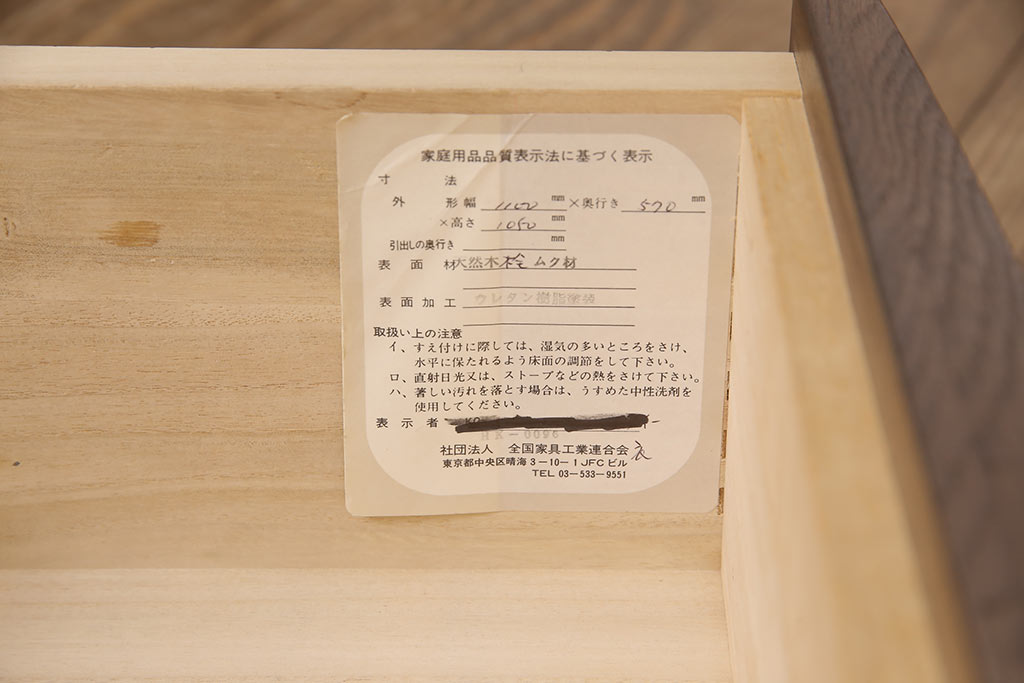 家庭用品品質表示法に基づく表示
寸 法
外 形 幅 1100 mm × 奥行き 570 mm
× 高さ 1050 mm
引出しの奥行き mm
表 面 材 天然木 桧 ムク材
表 面 加 工 ウレタン樹脂塗装
取扱い上の注意
イ、すえ付けに際しては、湿気の多いところをさけ、
水平に保たれるよう床面の調節をして下さい。
ロ、直射日光又は、ストーブなどの熱をさけて下さい。
ハ、著しい汚れを落とす場合は、うすめた中性洗剤を
使用してください。
表 示 者
HK-0096
社団法人 全国家具工業連合会
東京都中央区晴海3-10-1 JFCビル
TEL 03-533-9551